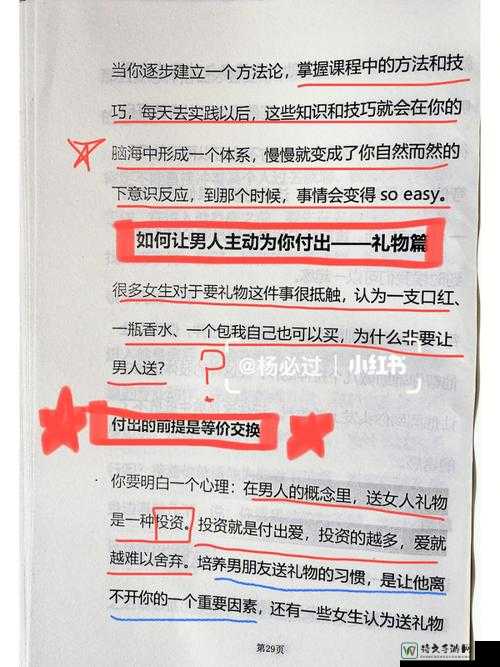 当你逐步建立一个方法论，掌握课程中的方法和技
巧，每天去实践以后，这些知识和技巧就会在你的
脑海中形成一个体系，慢慢就变成了你自然而然的
下意识反应，到那个时候，事情会变得 so easy。
如何让男人主动为你付出——礼物篇
很多女生对于要礼物这件事很抵触，认为一支口红、
一瓶香水、一个包我自己也可以买，为什么非要让
男人送？
？
@杨必过 | 小红书
付出的前提是等价交换
你要明白一个心理：在男人的概念里，送女人礼物
是一种投资。投资就是付出爱，投资的越多，爱就
越难以舍弃。培养男朋友送礼物的习惯，是让他离
不开你的一个重要因素，还有一些女生认为送礼物
第29页